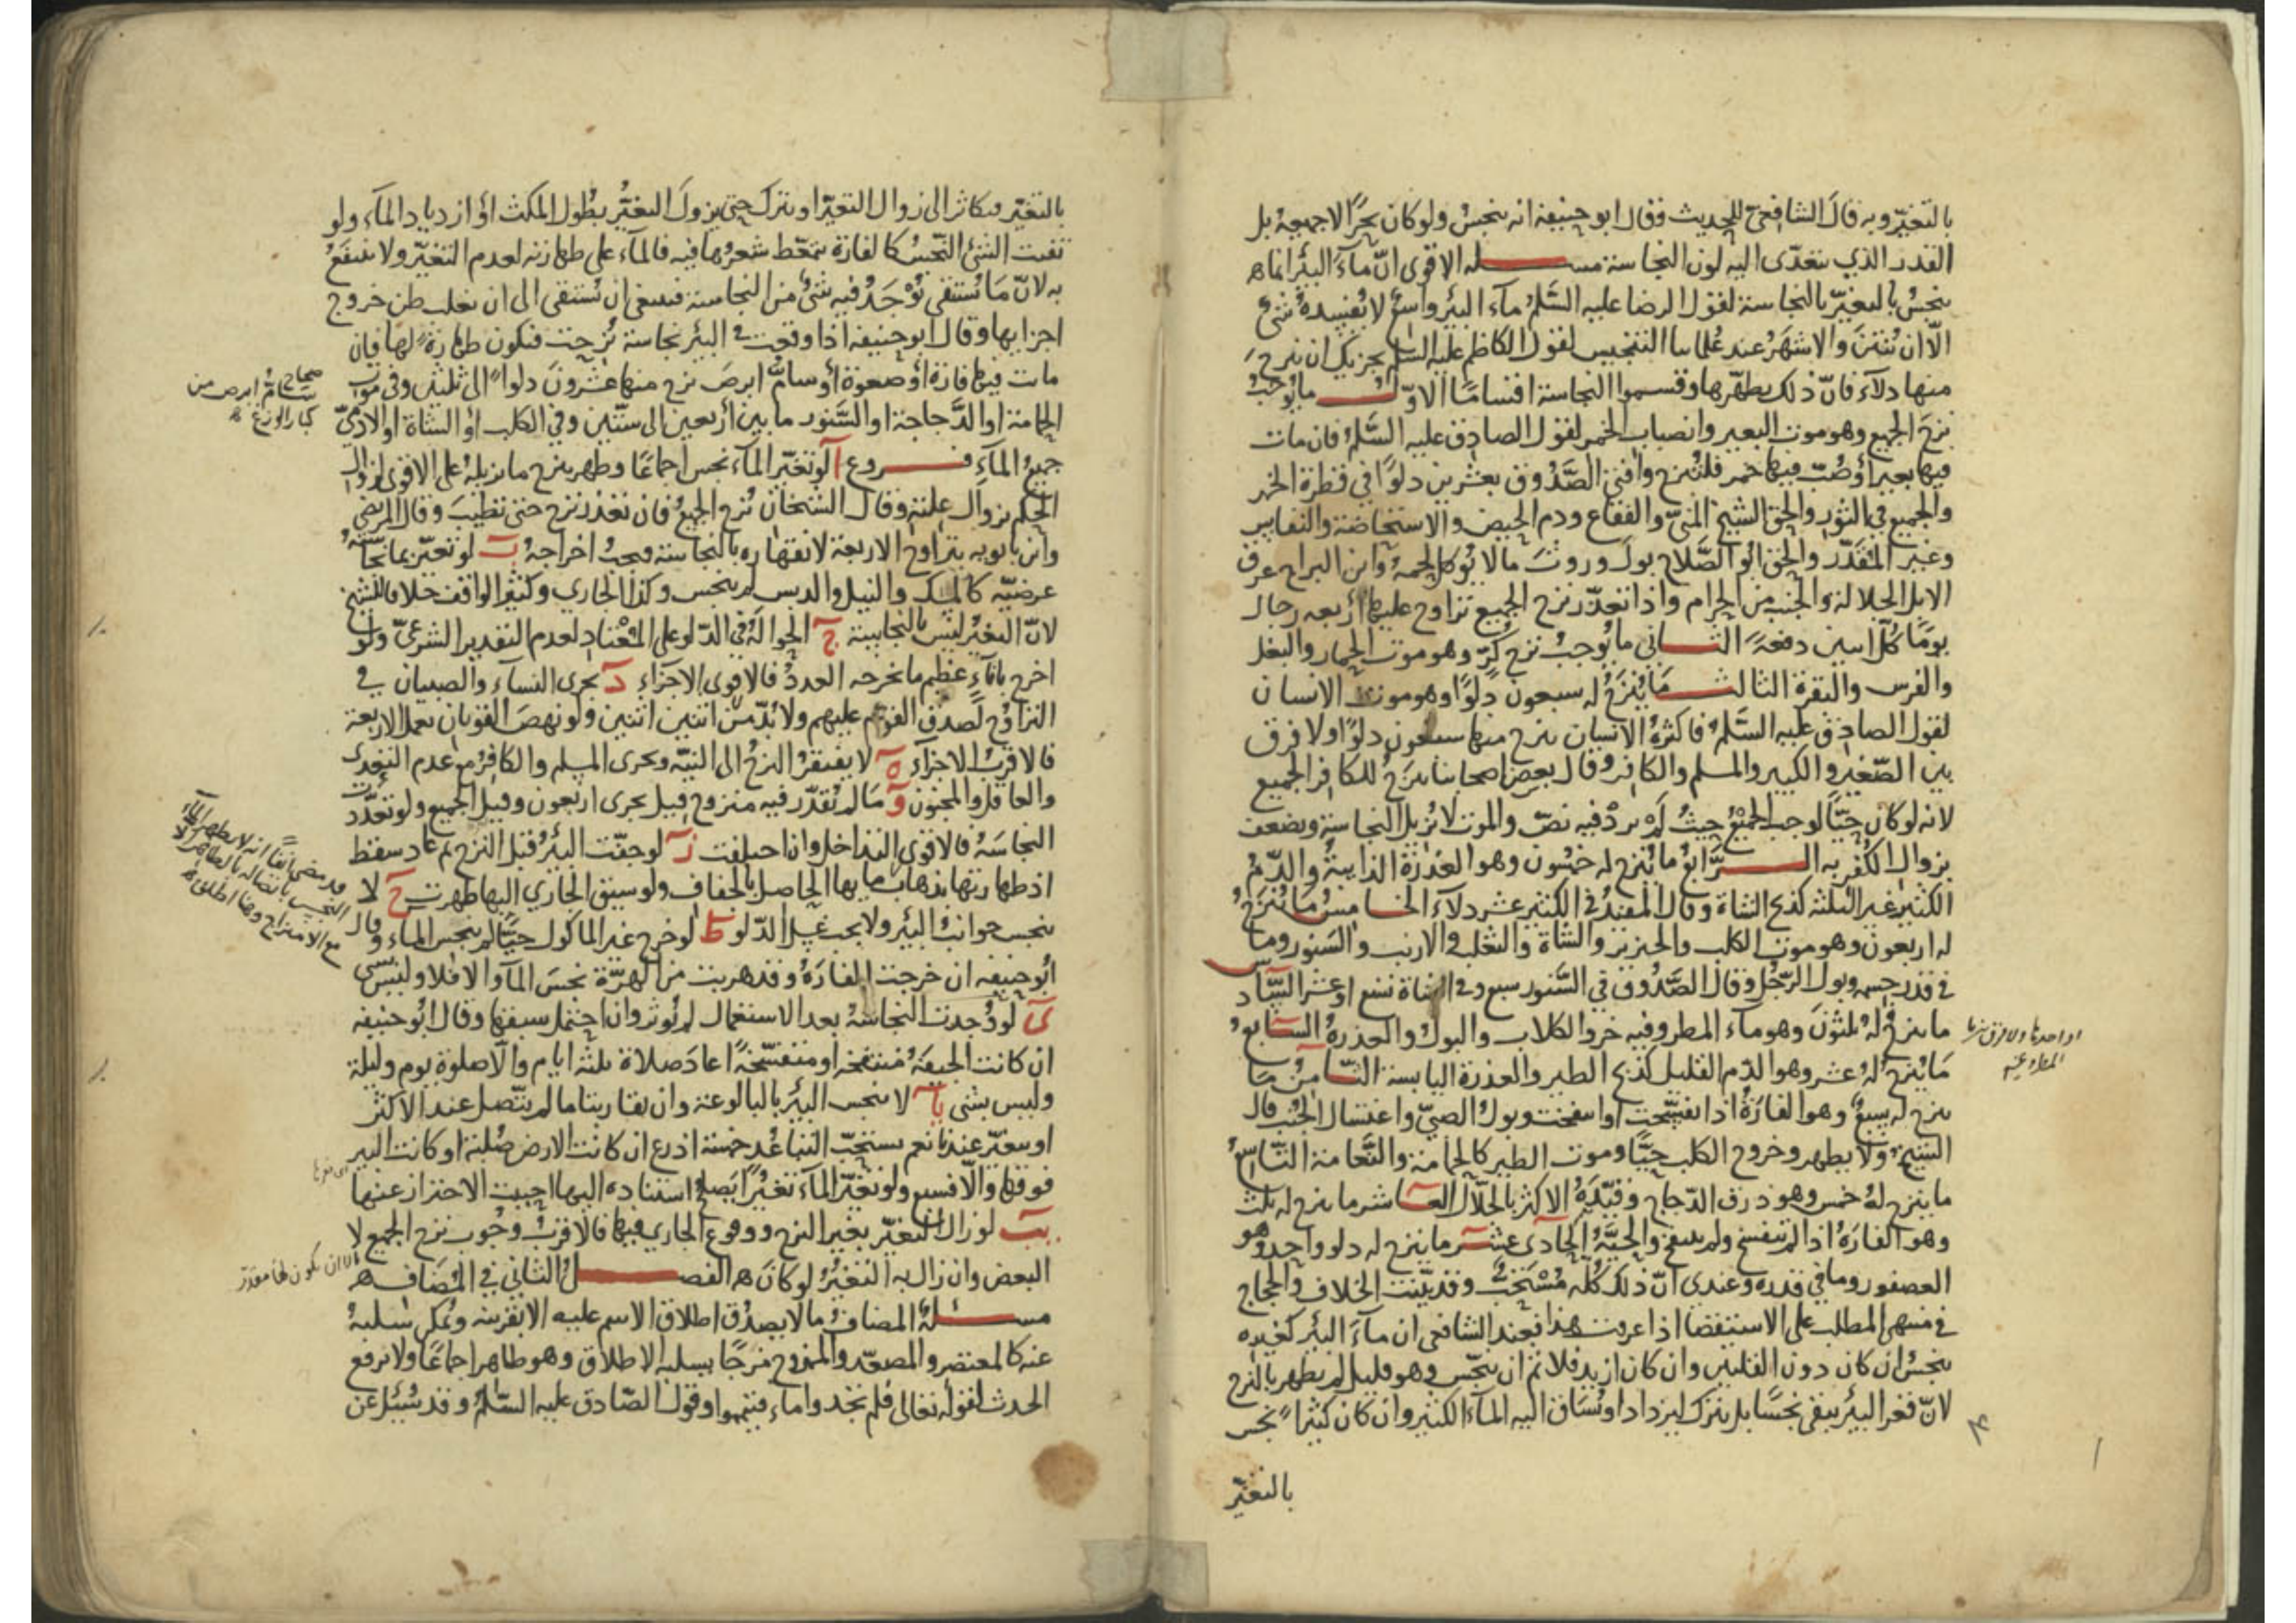 بالتغيّر وبه قال الشافعي للحديث وقال ابو حنيفة انه ينجس ولو كان بحرًا لا جميعه بل
القدر الذي يتعدّى اليه لون النجاسة مسئله الاقوى انّ مآء البئر انما
ينجسُ بالتغيّر بالنجاسة لقول الرضا عليه السّلم مآء البئر واسعٌ لا يُفسِدهُ شئ
الّا ان يُنتِنَ والاشهَرُ عند علمائنا التنجيس لقول الكاظم عليه السلم يجزيك ان ينزحَ
منها دلآء فانّ ذلك يطهّرها وقسموا النجاسة اقسامًا الاوّل ما يُوجبُ
نزحَ الجميع وهو موت البعير وانصباب الخمر لقول الصادق عليه السَّلم فان مات
فيها بعير أو صُبّ فيها خمر فلتُنزح وافتى الصَّدُوق بعشرين دلوًا في قطرة الخمر
والجميع في الثّور والحق الشيخ المنيّ والفقاع ودم الحيض والاستحاضة والنفاس
وغير المُقدَّر والحق ابُو الصَّلاح بولَ وروثَ ما لا يُوكل لحمهُ وابن البراج عرق
الابل الجلالة والجنب من الحرام واذا تعذّر نزح الجميع تراوح عليها أربعه رجال
يومًا كلّ اثنين دفعةً الثاني ما يُوجبُ نزح كرّ وهو موت الحمار والبغل
والفرس والبقرة الثالث مَا يُنزَحُ له سبعون دلوًا وهو موت الانسان
لقول الصادق عليه السَّلم فاكثرهُ الانسان ينزح منها سبعون دلوًا ولا فرق
بين الصّغير والكبير والمسلم والكافر وقال بعض اصحابنا ينزحُ للكافر الجميع
لانه لو كان حيًّا لوجب الجميعُ حيثُ لَم يردْ فيه نصّ والموت لا يُزيل النجاسة ويضعف
بزوال الكُفر به الرّابعُ ما يُنزح له خمسُون وهو العذرَةُ الذايبةُ والدّمُ
الكثير غير الثلثه كذبح الشاة وقال المفيدُ في الكثير عشر دلآء الخامسُ مَا يُنزحُ
له اربعون وهو موت الكلب والخنزير والشاة والثعلب والارنب والسّنور وما
في قدر جسمه وبول الرّجُل وقال الصّدُوق في السّنور سبع وفي الشاة تسع او عشر السّادس
ما ينزح لهُ ثلثونَ وهو مآء المطر وفيه خرو الكلاب والبول والعذرةُ السّابعُ
مَا يُنزح لهُ عشر وهو الدّم القليل كذبح الطير والعذرة اليابسة الثامنُ مَا
ينزح له سبعٌ وهو الفارَةُ اذا تفسّخت او انتفخت وبولُ الصبيّ واغتسال الجُنُب قال
الشيخ ولا يطهر وخروج الكلب حيًّا وموت الطير كالحمامة والنّعامة التّاسعُ
ما ينزح لهُ خمس وهو ذرق الدّجاج وقيّدهُ الاكثر بالجلّال العاشر ما ينزح له ثلث
وهو الفارَةُ اذا لم تتفسخ ولم تنتفخ والحيَّةُ الحادى عشر ما ينزح له دلو واحد وهو
العصفور وما في قدره وعندى انّ ذلك كُلّه مُسْتَحبٌّ وقد بيّنت الخلاف والحجاج
في منتهى المطلب على الاستقصا اذا عرفت هذا فعند الشافعى ان مآءَ البئر كغيره
ينجسُ ان كان دون القلتين وان كان ازيد فلا ثم ان تنجّس وهو قليل لم يطهر بالنزح
لانّ قعر البئر يبقى نجسًا بل يترك ليزداد او يُسَاق اليه المآء الكثير وان كان كثيرًا نجس
بالتغيّر
او احدها ولا فرق
بالتغيّر فيكاثر الى زوال التغيّر او يترك حتى يزولَ التغيُّر بطُول المكث اوُ ازدياد المآء ولو
تفتت الشئ النّجسُ كالفارة تمعّط شعرُها فيه فالمآء على طهارته لعدم التغيّر ولا ينتفعُ
به لانّ مَا يُستقى يُوْجَدُ فيه شئٌ من النجاسة فينبغى ان يُستقى الى ان يغلب ظن خروج
اجزايها وقال ابو حنيفه اذا وقعت في البئر نجاسة نُزحت فتكون طهارةً لها فان
ماتت فيها فارة أو صعوة أو سامّ ابرصَ نزح منها عشرونَ دلوًا الى ثلثين وفى موت
الحمامة او الدَّجاجة او السَّنور ما بين أربعين الى ستّين وفي الكلب اوُ الشاة او الادميّ
جميعُ المآءِ فروع آ لو تغيّر المآء نجس اجماعًا وطهر بنزح ما يزيلهُ على الاقوى لزوال
الحكم بزوال علّته وقال الشيخان نُزح الجميعُ فان تعذّر نزح حتى تطيبَ وقال المرتضى
وابن بابويه يتراوح الاربعة لانقهاره بالنجاسة فيجبُ اخراجهُ ب لو تغيّر بما نجاسَتُهُ
عرضيّه كالمسك والنيل والدبس لم ينجس وكذا الجاري وكثير الواقف خلافا للشيخ
لانّ التغيّر ليس بالنجاسة ج الحوالةُ في الدّلو على المُعتاد لعدم التقدير الشرعىّ ولو
اخرج باناءٍ عظيم ما يخرجه العددُ فالاقوى الاجزاء د يجرى النساء والصبيان في
التراوُح لصدق القوم عليهم ولا بُدّ من اثنين اثنين ولو نهضَ القويان بعمل الاربعة
فالاقربُ الاجزآء ه لا يفتقرُ النزحُ الى النيّه ويجزى المسلم والكافرُ مع عدم التعدى
والعاقل والمجنون و مَا لم يُقدّر فيه منزوح قيل يجزى اربعون وقيل الجميع ولو تعدّدت
النجاسَةُ فالاقوى التداخل وان اختلفت ز لو جفّت البئرُ قبل النزح ثم عاد سقط
اذ طهارتها بذهاب مايها الحاصل بالجفاف ولو سيق الجاري اليها طهرت ح لا
ينجس جوانب البئر ولا يجب غسل الدّلو ط لو خرج غير الماكول حيًّا لم ينجس الماء وقال
ابُو حنيفه ان خرجت الفارَةُ وقد هربت من الهرّة نجسَ المآء والا فلا وليس بشى
ى لو وُجدت النجاسَةُ بعد الاستعمال لم يُوثر وان احتمل سبقها وقال ابُو حنيفه
ان كانت الجيفَة مُنتفخه او متفسّخةً اعادَ صلاة ثلثه ايام والّا صلوة يوم وليلة
وليس بشى يا لا ينجس البئر بالبالوعة وان تقاربتا ما لم يتّصل عند الاكثر
او يتغيّر عندنا نعم يستحبّ التباعُد خمسة اذرع ان كانت الارض صُلبة او كانت البير
فوقها والّا فسبع ولو تغيّر المآء تغيّرًا يَصلح استناده اليها احببت الاحتراز عنها
يب لو زال التغيّر بغير النزح ووقوع الجاري فيها فالاقربُ وجُوب نزح الجميع لا
البعض وان زال به التغيُّر لو كانَ الفصلُ الثاني في المُضاف
مسئلةُ المضافُ ما لا يصدُق اطلاق الاسم عليه الا بقرينة ويُمكن سلبهُ
عنه كالمعتصر والمصعّد والممزوج مزجًا يسلبه الاطلاق وهو طاهر اجماعًا ولا يرفع
الحدث لقوله تعالى فلم تجدوا ماء فتيمموا وقول الصّادق عليه السّلم وقد سُئِل عن
صحاح سامُّ ابرص من
كبار الوزغ
الا ان يكون لها مقدّر